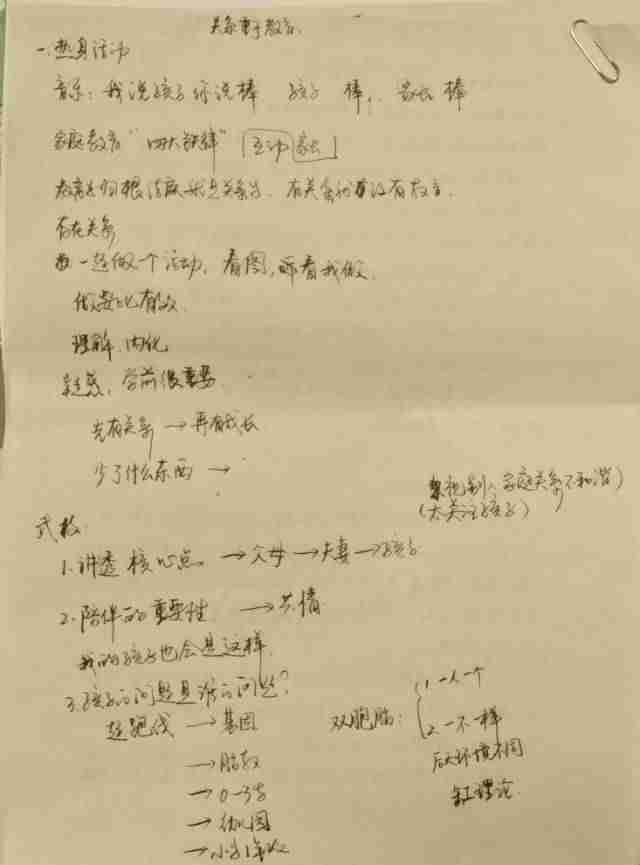 关系重于教育
一、热身活动
音乐：我说孩子你说棒 孩子 棒，家长 棒
家庭教育“四大铁律” 互动
教育归根结底就是关系, 有关系的 没有教育.
存在关系
一起做个活动, 看图, 听看我做.
做要比有效
理解、内化
疑惑, 学前很重要
先有关系 → 再有成长
少了什么东西 →
祝别人家庭关系不和谐
(太关注孩子)
1.讲透核心点 → 父母 → 夫妻 → 孩子
2.陪伴的重要性 → 共情
我的孩子也会是这样.
3.孩子的问题是谁的问题?
起跑线 → 基因
→ 胎教
→ 0-3岁
→ 幼儿园
→ 小学1年级
双胞胎: 1 一人一个
2 一不一样
后天环境不同
缸理论